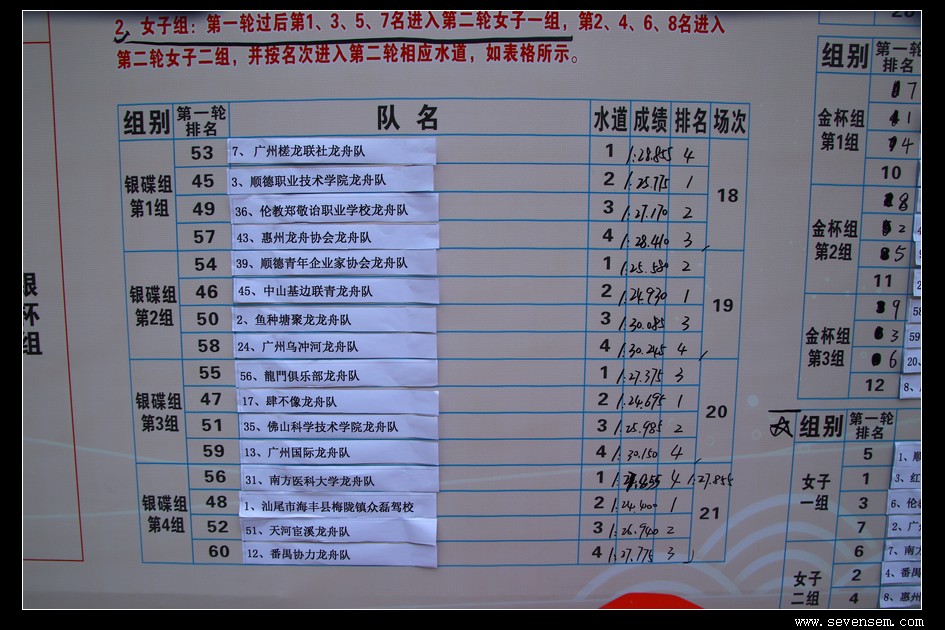 2、女子组：第一轮过后第1、3、5、7名进入第二轮女子一组，第2、4、6、8名进入
第二轮女子二组，并按名次进入第二轮相应水道，如表格所示。
组别 第一轮排名 队名 水道 成绩 排名 场次
银碟组第1组 18
53 7、广州槎龙联社龙舟队 1 1:28.855 4
45 3、顺德职业技术学院龙舟队 2 1:25.775 1
49 36、伦教郑敬诒职业学校龙舟队 3 1:27.170 2
57 43、惠州龙舟协会龙舟队 4 1:28.410 3
银碟组第2组 19
54 39、顺德青年企业家协会龙舟队 1 1:25.580 2
46 45、中山基边联青龙舟队 2 1:24.930 1
50 2、鱼种塘聚龙龙舟队 3 1:30.085 3
58 24、广州乌冲河龙舟队 4 1:30.245 4
银碟组第3组 20
55 56、龍門俱乐部龙舟队 1 1:27.375 3
47 17、肆不像龙舟队 2 1:24.695 1
51 35、佛山科学技术学院龙舟队 3 1:25.985 2
59 13、广州国际龙舟队 4 1:30.150 4
银碟组第4组 21
56 31、南方医科大学龙舟队 1 4 1:27.855
48 1、汕尾市海丰县梅陇镇众磊驾校 2 1:24.400 1
52 51、天河宦溪龙舟队 3 1:26.940 2
60 12、番禺协力龙舟队 4 1:27.775 3
杯
组
组别 第一轮排名
金杯组第1组
17
1
14
10
金杯组第2组
8
2
5
11
金杯组第3组
9 58
3 59
6 20、
12 8、
组别 第一轮排名
女子一组
5 1、顺
1 3、红
3 6、伦
7 2、广
女子二组
6 7、南
2 4、番禺
4 8、惠州
www.sevensem.com